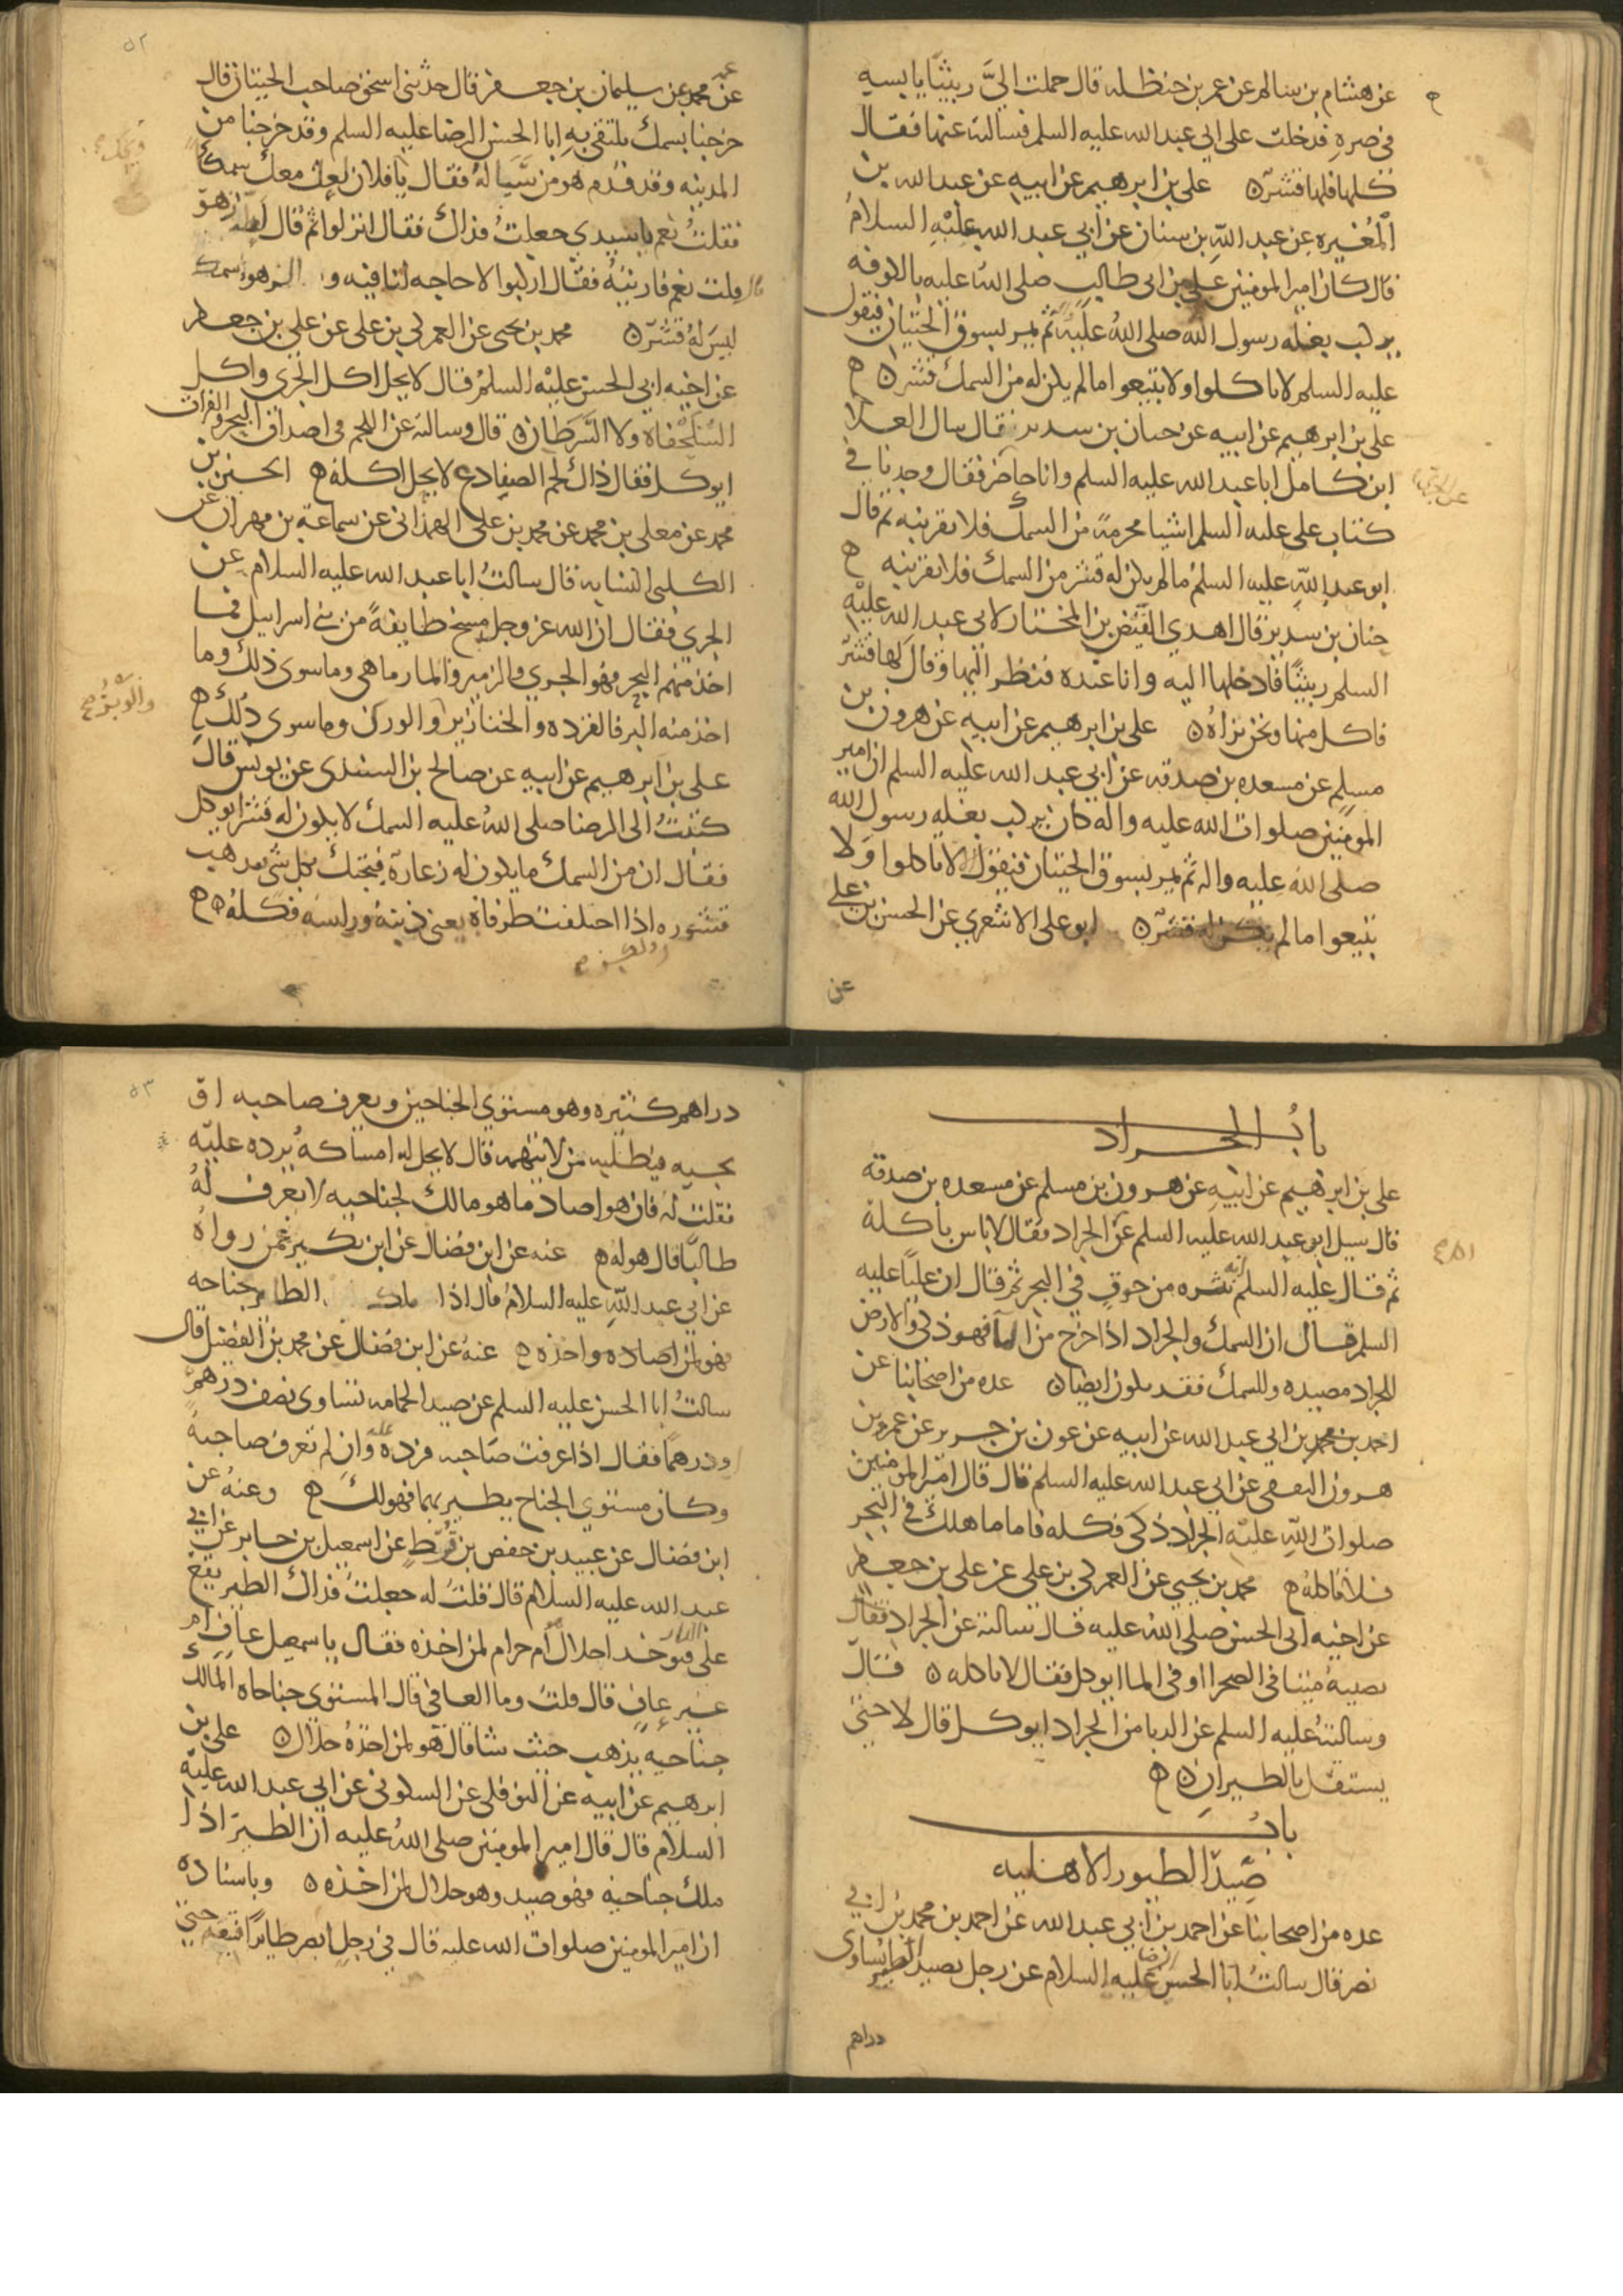 عن هشام بن سالم عن عمر بن حنظله قال حملت اليَّ ربيثًا يابسه
في صرهٍ فدخلت على ابي عبد الله عليه السلم فسالته عنها فقال
كلها فلها قشرٌ ه علي بن ابرهيم عن ابيه عن عبد الله بن
المُغيره عن عبد اللهِ بن سنان عن ابي عبد الله عليْهِ السلامُ
قال كان امير المومنين علي بن ابي طالب صلى اللهُ عليه بالكوفه
يركب بغله رسول الله صلى اللهُ عليه ثم يمر بسوق الحيتان فيقول
عليه السلم لا تاكلوا ولا تبيعوا ما لم يكن له من السمك قشر ه
علي بن ابرهيم عن ابيه عن حنان بن سدير قال سال العلا
ابن كامل ابا عبد الله عليه السلم وانا حاضر فقال وجدنا في
كتاب علي عليه السلم اشيا محرمة من السمك فلا تقربنه ثم قال
ابو عبد اللهِ عليه السلم ما لم يكن له قشر من السمك فلا تقربنه
حنان بن سدير قال اهدى الفيض بن المختار لابي عبد الله عليْهِ
السلم ربيثًا فادخلها اليه وانا عنده فنظر اليها وقال لها قشرٌ
فاكل منها ونحن نراهُ ه علي بن ابرهيم عن ابيه عن هرون بن
مسلمٍ عن مسعده بن صدقه عن ابي عبد الله عليه السلم ان امير
المومنين صلوات الله عليه واله كان يركب بغله رسول الله
صلى الله عليه واله ثم يمر بسوق الحيتان فيقول الا لا تاكلوا ولا
تبيعوا ما لم يكن له قشرٌ ه ابو علي الاشعري عن الحسن بن علي
عن
٥٢
عن محمد عن سليمان بن جعفر قال حدثني اسحق صاحب الحيتان قال
خرجنا بسمك نلتقي بهِ ابا الحسن الرضا عليه السلم وقد خرجنا من
المدينه وقد قدم هو من سَيَالهُ فقال يا فلان لعل معك سمكًا
فقلتُ نعم يا سيدي جعلتُ فداك فقال انزلوا ثم قال زهو
قال قلت نعم فاريتهُ فقال اركبوا لا حاجه لنا فيه والزهو سمك
ليس لهُ قشرٌ ه محمد بن يحيى عن العمركي بن علي عن علي بن جعفر
عن اخيه ابي الحسن عليْه السلمُ قال لا يحل اكل الجري ولا اكل
السُلَحْفاة ولا السَرَطان ه قال وسالته عن اللحم في اصداف البحر والفرات
ايوكل فقال ذاك لحم الضفادع لا يحل اكله ه الحسين بن
محمد عن معلى بن محمد عن محمد بن علي الهمذاني عن سماعة بن مهران عن
الكلبي النسابه قال سالتُ ابا عبد الله عليه السلام عن
الجري فقال ان الله عز وجل مسخ طايفةً من بني اسرايل فما
اخذ منهم البحر فهو الجري والزمير والمارماهي وما سوى ذلك وما
اخذ منه البر فالقرده والخنازير والورك وما سوى ذلك ه
والوبر
علي بن ابرهيم عن ابيه عن صالح بن السندي عن يونس قال
كتبتُ الى الرضا صلى اللهُ عليه السمك لا يكون له قشر ايوكل
فقال ان من السمك ما يكون له زعارة فيحتك بكل شي فيذهب
قشوره اذا اختلفت طرفاه يعني ذنبهُ وراسه فكلهُ ه
بابُ الجراد
علي بن ابرهيم عن ابيهِ عن هرون بن مسلم عن مسعده بن صدقه
قال سيل ابو عبد الله عليه السلم عن الجراد فقال لا باس باكله
ثم قال عليه السلم انه نثره من حوتٍ في البحر ثم قال ان عليًا عليه
السلم قال ان السمك والجراد اذا خرج من الما فهو ذكي والارض
للجراد مصيده وللسمك فقد يكون ايضًا ه عده من اصحابنا عن
احمد بن محمد بن ابي عبد الله عن ابيه عن عون بن جرير عن عمرو بن
هرون الثقفي عن ابي عبد الله عليه السلم قال قال امير المومنين
صلوات اللهِ عليه الجراد ذكي فكله فاما ما هلك في البحر
فلا تاكلهُ ه محمد بن يحيى عن العمركي بن علي عن علي بن جعفر
عن اخيه ابي الحسن صلى اللهُ عليه قال سالته عن الجراد
نصيبهُ ميتا في الصحرا او في الما ايوكل فقال لا تاكله ه قال
وسالتهُ عليه السلم عن الدبا من الجراد ايوكل قال لا حتى
يستقل بالطيرانِ ه
بابُ
صَيد الطيور الاهليه
عده من اصحابنا عن احمد بن ابي عبد الله عن احمد بن محمد بن ابي
نصر قال سالتُ ابا الحسن الرضا عليه السلام عن رجل يصيد الطير يساوي
دراهم
٥٣
دراهم كثيره وهو مستوي الجناحين ويعرف صاحبه او
يجيه فيطلبه من لا يتهمه قال لا يحل له امساكهُ يرده عليْه
فقلت لهُ فان هو صاد ما هو مالك لجناحيه لا يعرف لهُ
طالبًا قال هو له ه عنه عن ابن فضال عن ابن بكير عمن رواهُ
عن ابي عبد اللهِ عليه السلامُ قال اذا ملك الطاير جناحه
فهو لمن اصاده واخذه ه عنهُ عن ابن فضال عن محمد بن الفضيل قال
سالتُ ابا الحسن عليه السلم عن صيد الحمامه تساوي نصف درهم
ودرهمًا فقال اذا عرفت صاحبه فرده عليه وان لم تعرف صاحبهُ
وكان مستوي الجناح يطير بهما فهو لك ه وعنهُ عن
ابن فضال عن عبيد بن حفص بن قُرط عن اسمعيل بن جابر عن ابي
عبد الله عليه السلام قال قلتُ له جعلتُ فداك الطير يقع
على الدار فيوخذ احلال ام حرام لمن اخذه فقال يا سمعيل عافٍ ام
غير عافٍ قال قلتُ وما العافي قال المستوي جناحاه المالك
جناحيه يذهب حيث شا قال هو لمن اخذهُ حلال ه علي بن
ابرهيم عن ابيه عن النوفلي عن السكوني عن ابي عبد الله عليهِ
السلام قال قال امير المومنين صلى اللهُ عليه ان الطير اذا
ملك جناحيه فهو صيد وهو حلال لمن اخذه ه وباسناده
ان امير المومنين صلوات الله عليه قال في رجل ابصر طايرًا فتبعه حتى